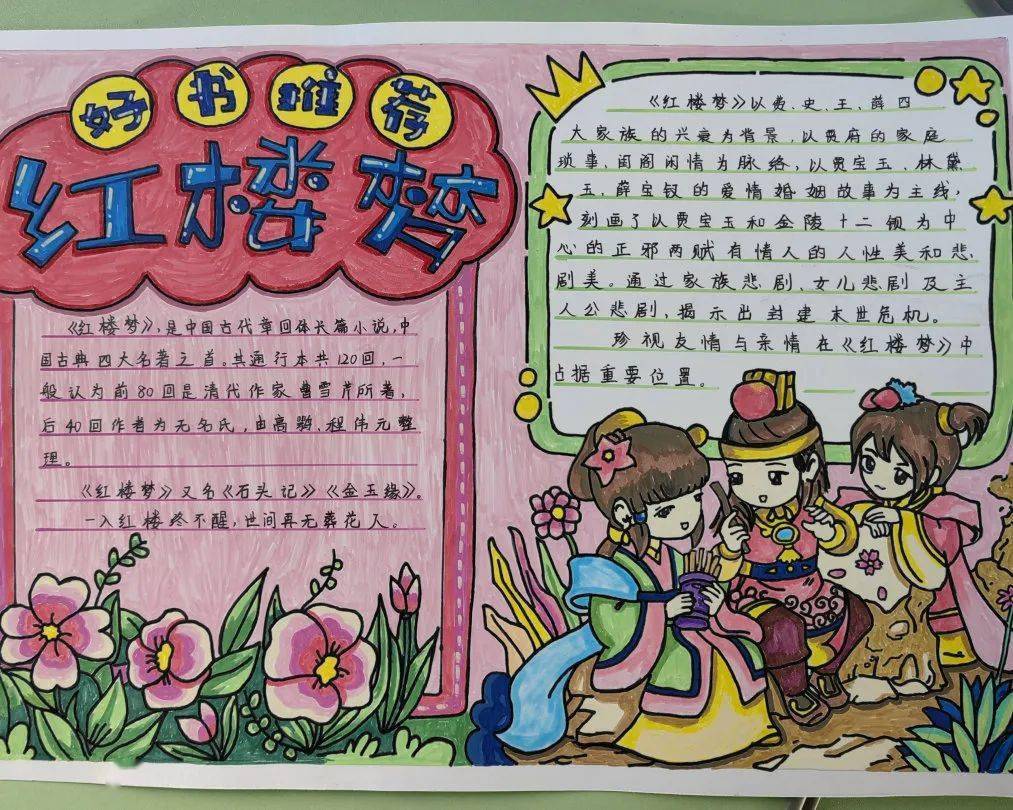 好书推荐
红楼梦
《红楼梦》,是中国古代章回体长篇小说,中
国古典四大名著之首。其通行本共120回,一
般认为前80回是清代作家曹雪芹所著,
后40回作者为无名氏,由高鹗、程伟元整
理。
《红楼梦》又名《石头记》《金玉缘》。
一入红楼终不醒,世间再无葬花人。
《红楼梦》以贾、史、王、薛四
大家族的兴衰为背景,以贾府的家庭
琐事、闺阁闲情为脉络,以贾宝玉、林黛
玉、薛宝钗的爱情婚姻故事为主线,
刻画了以贾宝玉和金陵十二钗为中
心的正邪两赋有情人的人性美和悲
剧美。通过家族悲剧、女儿悲剧及主
人公悲剧,揭示出封建末世危机。
珍视友情与亲情在《红楼梦》中
占据重要位置。